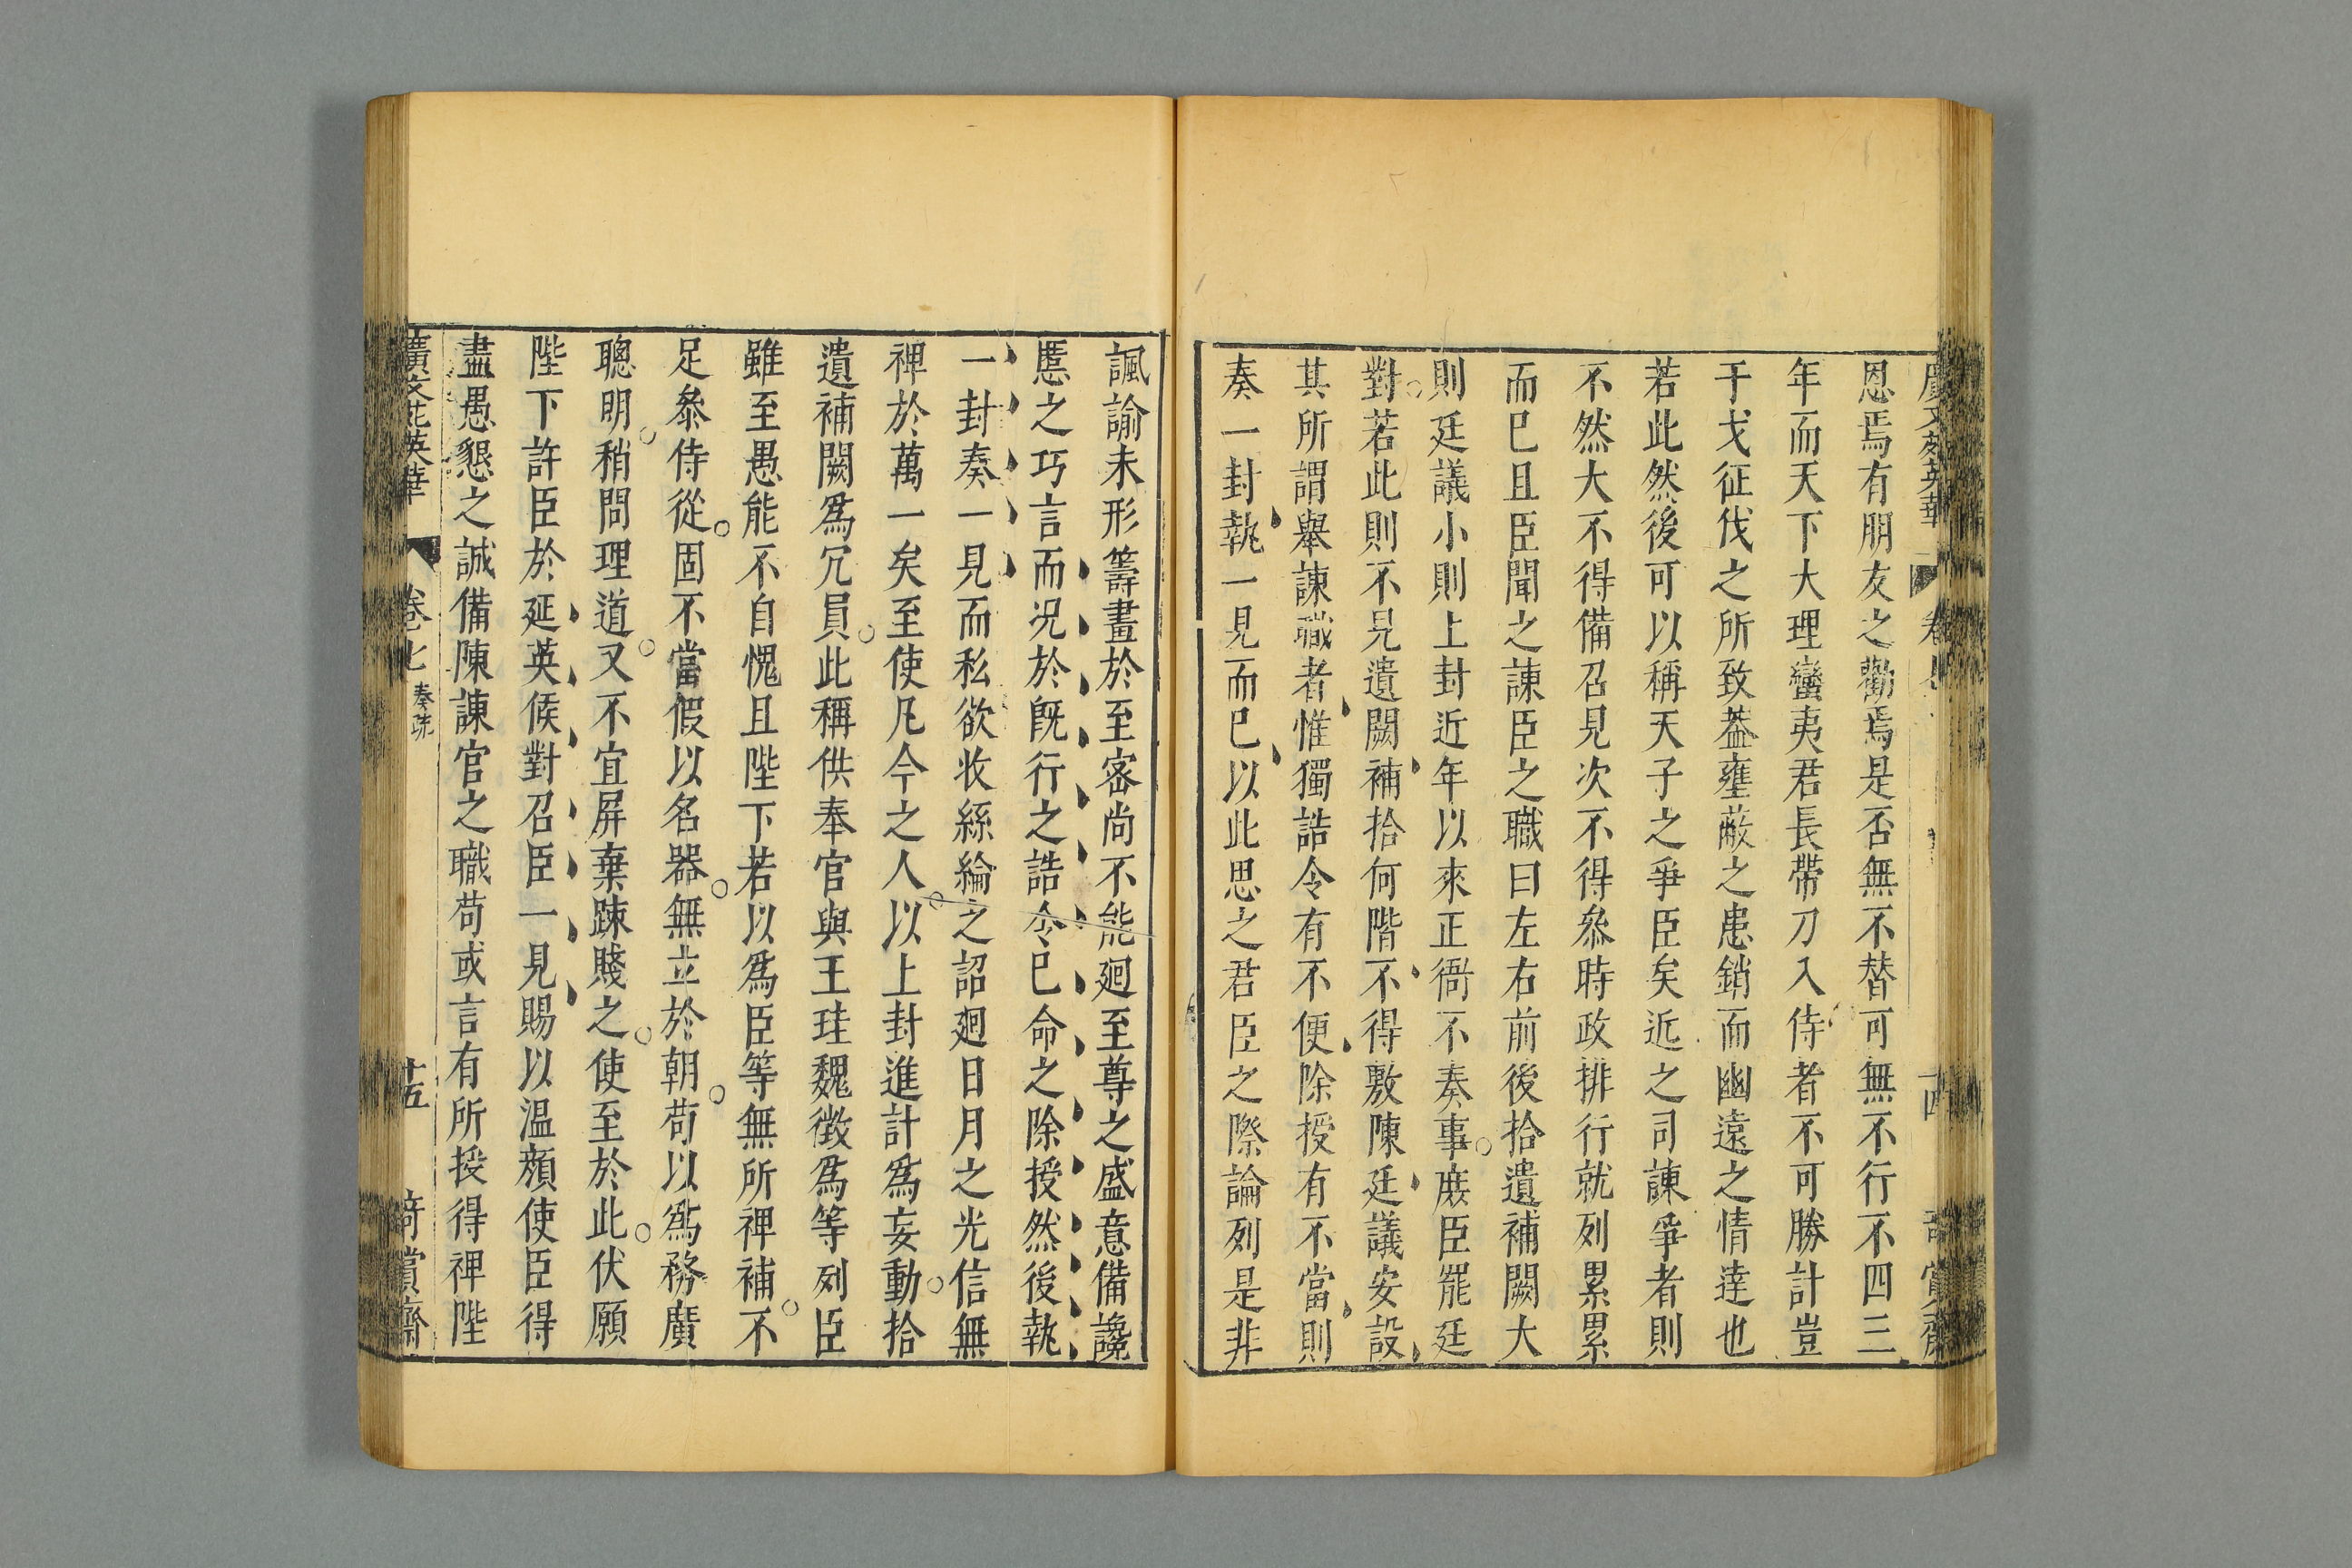 恩焉有朋友之勸焉是否無不替可無不行不四三
年而天下大理蠻夷君長帶刀入侍者不可勝計豈
干戈征伐之所致葢壅蔽之患銷而幽遠之情達也
若此然後可以稱天子之爭臣矣近之司諫爭者則
不然大不得備召見次不得叅時政排行就列累累
而已且臣聞之諫臣之職曰左右前後拾遺補闕大
則廷議小則上封近年以來正衙不奏事庻臣罷廷
對若此則不見遺闕補拾何階不得敷陳廷議安設
其所謂舉諫職者惟獨誥令有不便除授有不當則
奏一封執一見而已以此思之君臣之際論列是非
諷諭未形籌畫於至宻尚不能廻至尊之盛意備讒
慝之巧言而况於旣行之誥令已命之除授然後執
一封奏一見而私欲收絲綸之詔廻日月之光信無
裨於萬一矣至使凡今之人以上封進計爲妄動拾
遺補闕爲冗員此稱供奉官與王珪魏徴爲等列臣
雖至愚能不自愧且陛下若以爲臣等無所裨補不
足叅侍從固不當假以名器無立於朝苟以爲務廣
聰明稍問理道又不宜屏棄踈賤之使至於此伏願
陛下許臣於延英候對召臣一見賜以温顔使臣得
盡愚懇之誠備陳諫官之職苟或言有所授得裨陛
廣文苑英華 卷七 奏疏 十五 奇賞齋